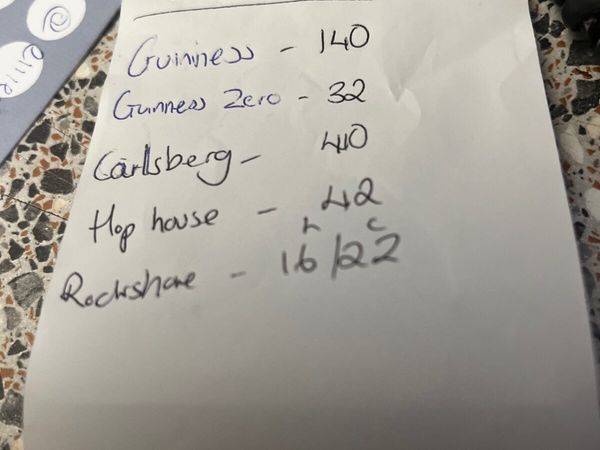 Guinness - 140
Guinness Zero - 32
Carlsberg - 40
Hop house - 42
h c
Rockshore - 16/22